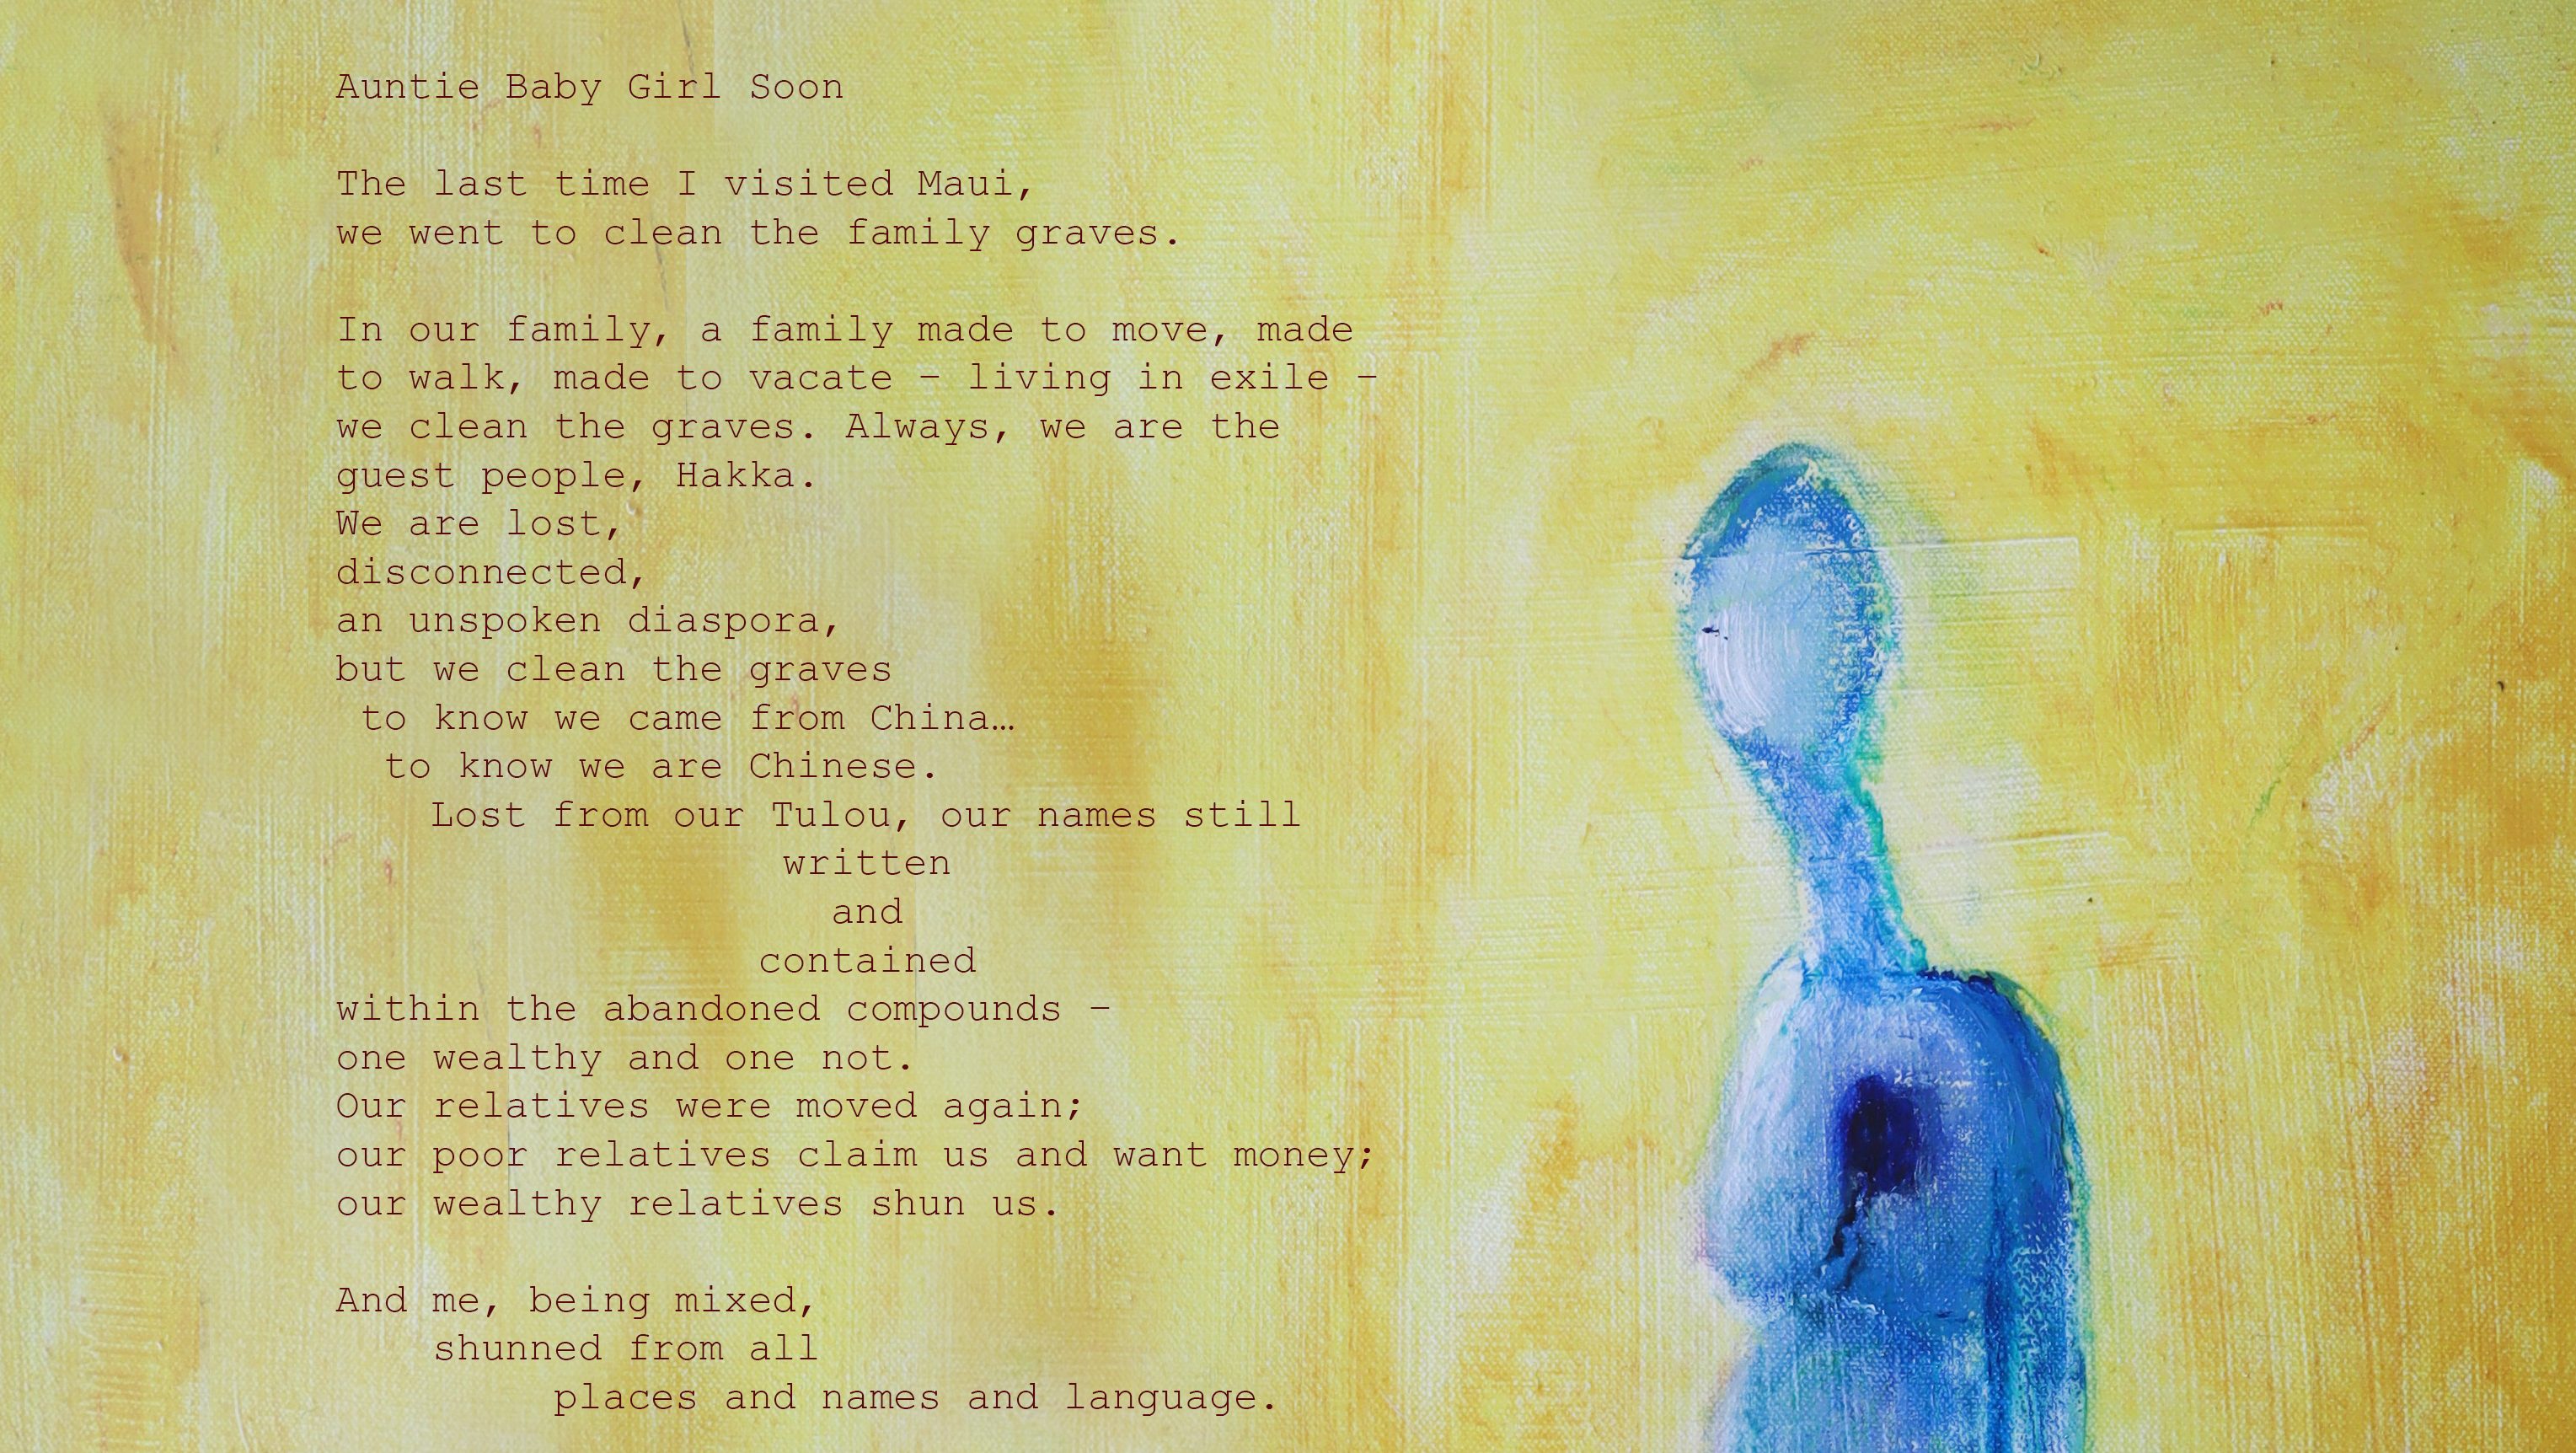 Auntie Baby Girl Soon
The last time I visited Maui,
we went to clean the family graves.
In our family, a family made to move, made
to walk, made to vacate – living in exile –
we clean the graves. Always, we are the
guest people, Hakka.
We are lost,
disconnected,
an unspoken diaspora,
but we clean the graves
to know we came from China…
to know we are Chinese.
Lost from our Tulou, our names still
written
and
contained
within the abandoned compounds –
one wealthy and one not.
Our relatives were moved again;
our poor relatives claim us and want money;
our wealthy relatives shun us.
And me, being mixed,
shunned from all
places and names and language.